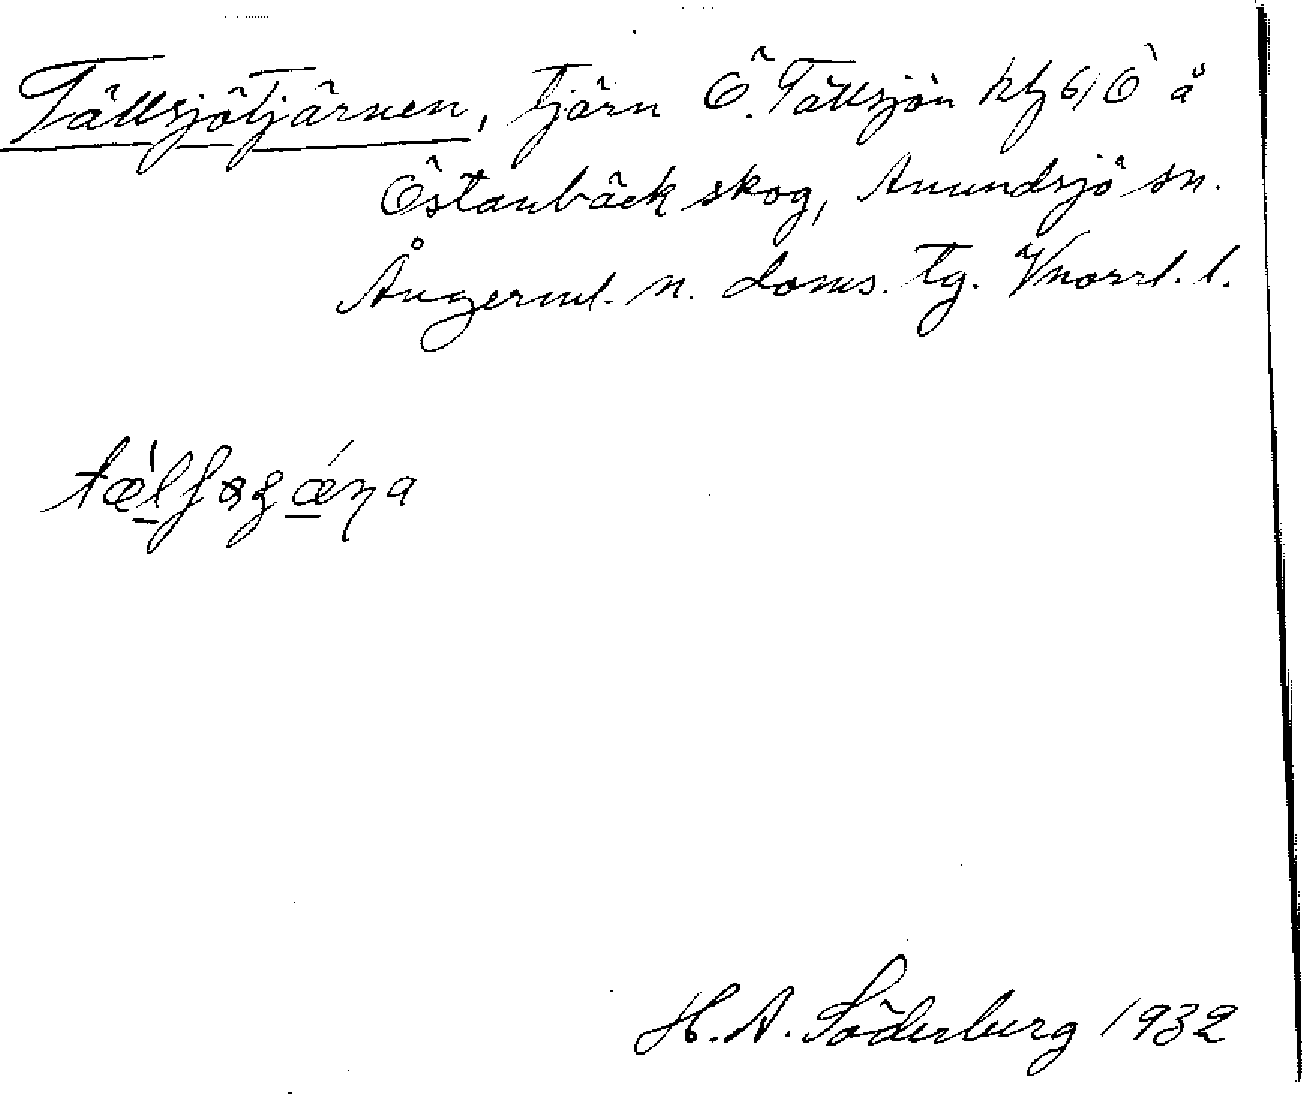 Tällsjötjärnen, tjärn Ö. Tällsjön kbl 61 Ö å
Östanbäck skog, Anundsjö sn.
Ångerml. n. doms. tg. Vnorrl. l.
H. A. Söderberg 1932